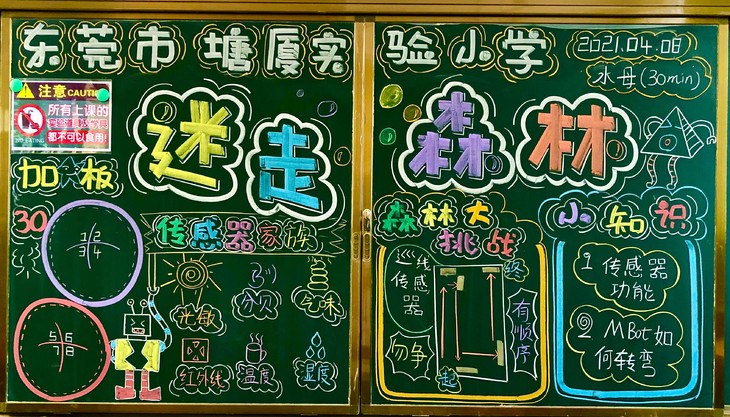 东莞市 塘厦实验小学
2021.04.08
水母(30min)
注意 CAUTION
所有上课的
都不可以食用!
NO EATING
迷走森林
加☆板
30
1 2
3 4
5 6
7 8
传感器家族
光敏
分贝
气味
红外线
温度
湿度
森林大
挑战
巡线
传感器
勿争
终
起
有顺序
小知识
1 传感器
功能
2 MBot如
何转弯